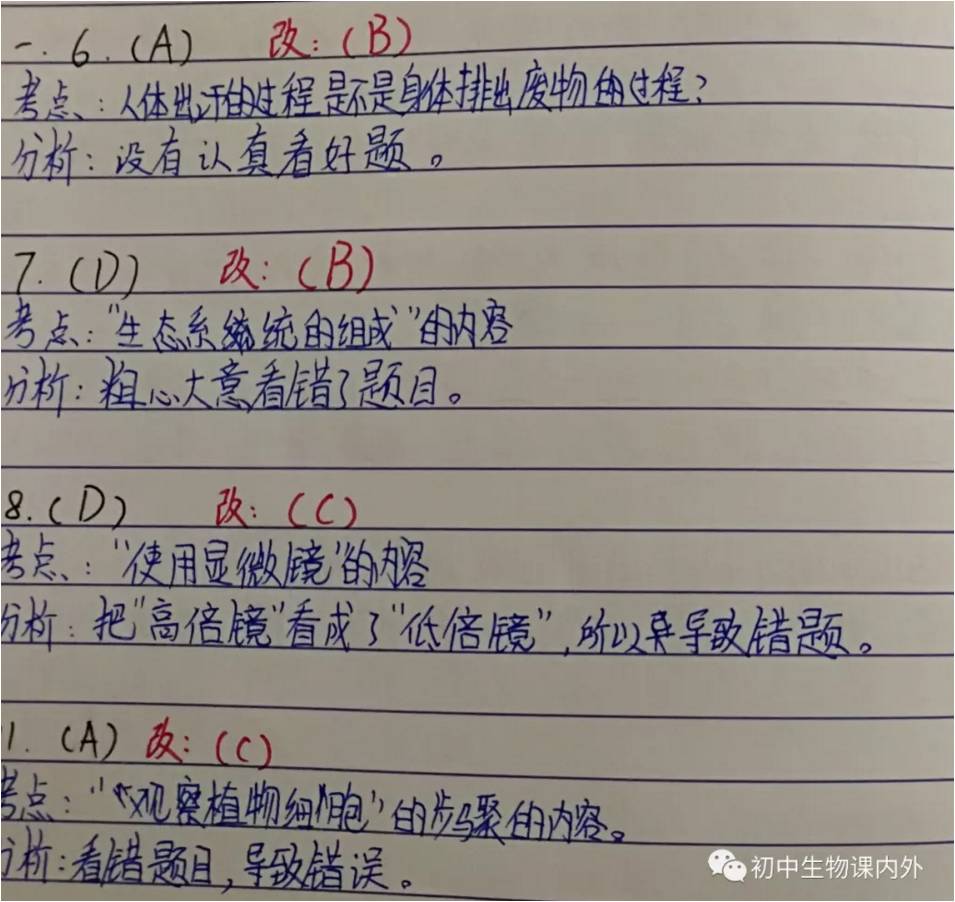 一. 6. (A) 改: (B)
考点: 人体出汗的过程是不是身体排出废物的过程?
分析: 没有认真看好题。
7. (D) 改: (B)
考点: "生态系统的组成"的内容
分析: 粗心大意看错了题目。
8. (D) 改: (C)
考点: "使用显微镜"的内容
分析: 把"高倍镜"看成了"低倍镜", 所以导致错题。
1. (A) 改: (C)
考点: "观察植物细胞"的步骤的内容。
分析: 看错题目, 导致错误。
初中生物课内外